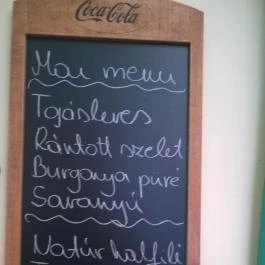 Coca-Cola
Mai menu
Tojásleves
Rántott szelet
Burgonya püré
Savanyú
Natúr halfilé